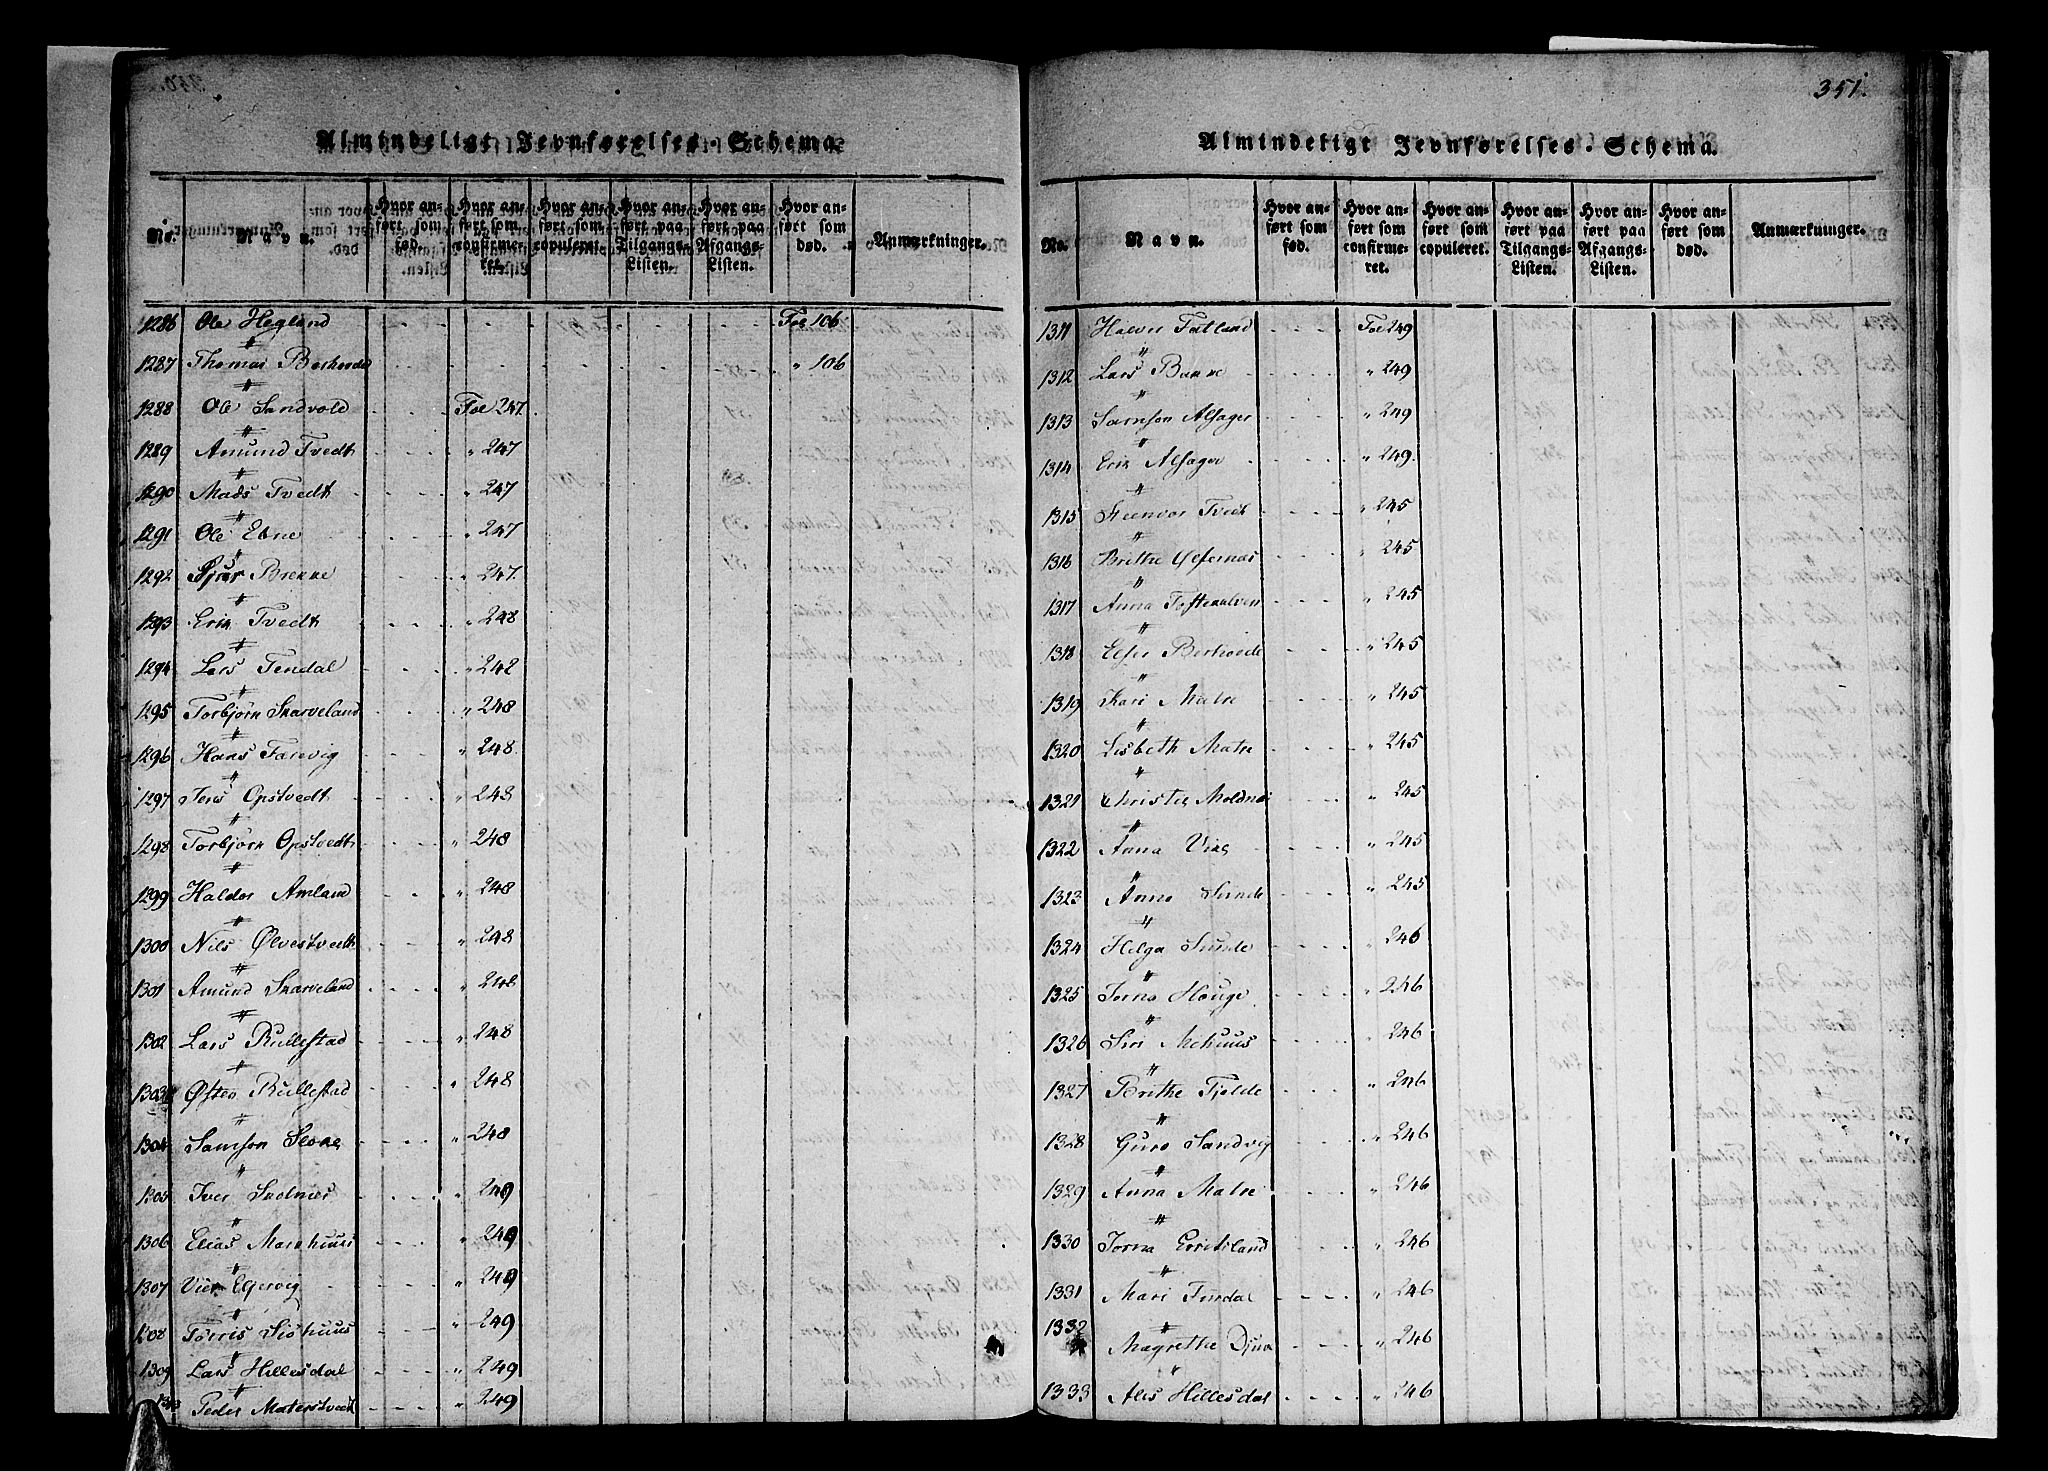 Almindeligt Jevnførelses-Schema.
No. Navn. Hvor anført som fød. Hvor anført som confirmeret. Hvor anført som copuleret. Hvor anført paa Tilgangs-Listen. Hvor anført paa Afgangs-Listen. Hvor anført som død. Anmærkninger.
1286 Ole Hegland Fol 106
1287 Thomas Berhovde " 106
1288 Ole Sandvold Fol 247
1289 Amund Tvedt " 247
1290 Mads Tvedt " 247
1291 Ole Ebne " 247
1292 Sjur Brekke " 247
1293 Erik Tvedt " 248
1294 Lars Tendal " 248
1295 Torbjørn Skarveland " 248
1296 Hans Færevig " 248
1297 Jens Opstvedt " 248
1298 Torbjørn Opstvedt " 248
1299 Haldor Amland " 248
1300 Nils Ølvestvedt " 248
1301 Amund Skarveland " 248
1302 Lars Rullestad " 248
1303 Østen Rullestad " 248
1304 Samson " 248
1305 Iver " 249
1306 Elias Markhuus " 249
1307 " 249
1308 Torris " 249
1309 Lars Hillesdal " 249
Peder Materstvedt " 249
351.
Almindeligt Jevnførelses-Schema.
No. Navn. Hvor anført som fød. Hvor anført som confirmeret. Hvor anført som copuleret. Hvor anført paa Tilgangs-Listen. Hvor anført paa Afgangs-Listen. Hvor anført som død. Anmærkninger.
1311 Halvor Fatland Fol 249
1312 Lars " 249
1313 Samson Alsager " 249
1314 Erik Alsager " 249
1315 Steenvor Tvedt " 245
1316 Brithe " 245
1317 Anna " 245
1318 Berhovde " 245
1319 Kari Matre " 245
1320 Lisbeth Matre " 245
1321 Christie " 245
1322 Anna " 245
1323 Anna Sunde " 245
1324 Helga Sunde " 246
1325 Houge " 246
1326 Siri Mehuus " 246
1327 Brithe Fjelde " 246
1328 Guro Sandvig " 246
1329 Anna Matre " 246
1330 " 246
1331 Mari " 246
1332 Magrethe " 246
1333 Hillesdal " 246